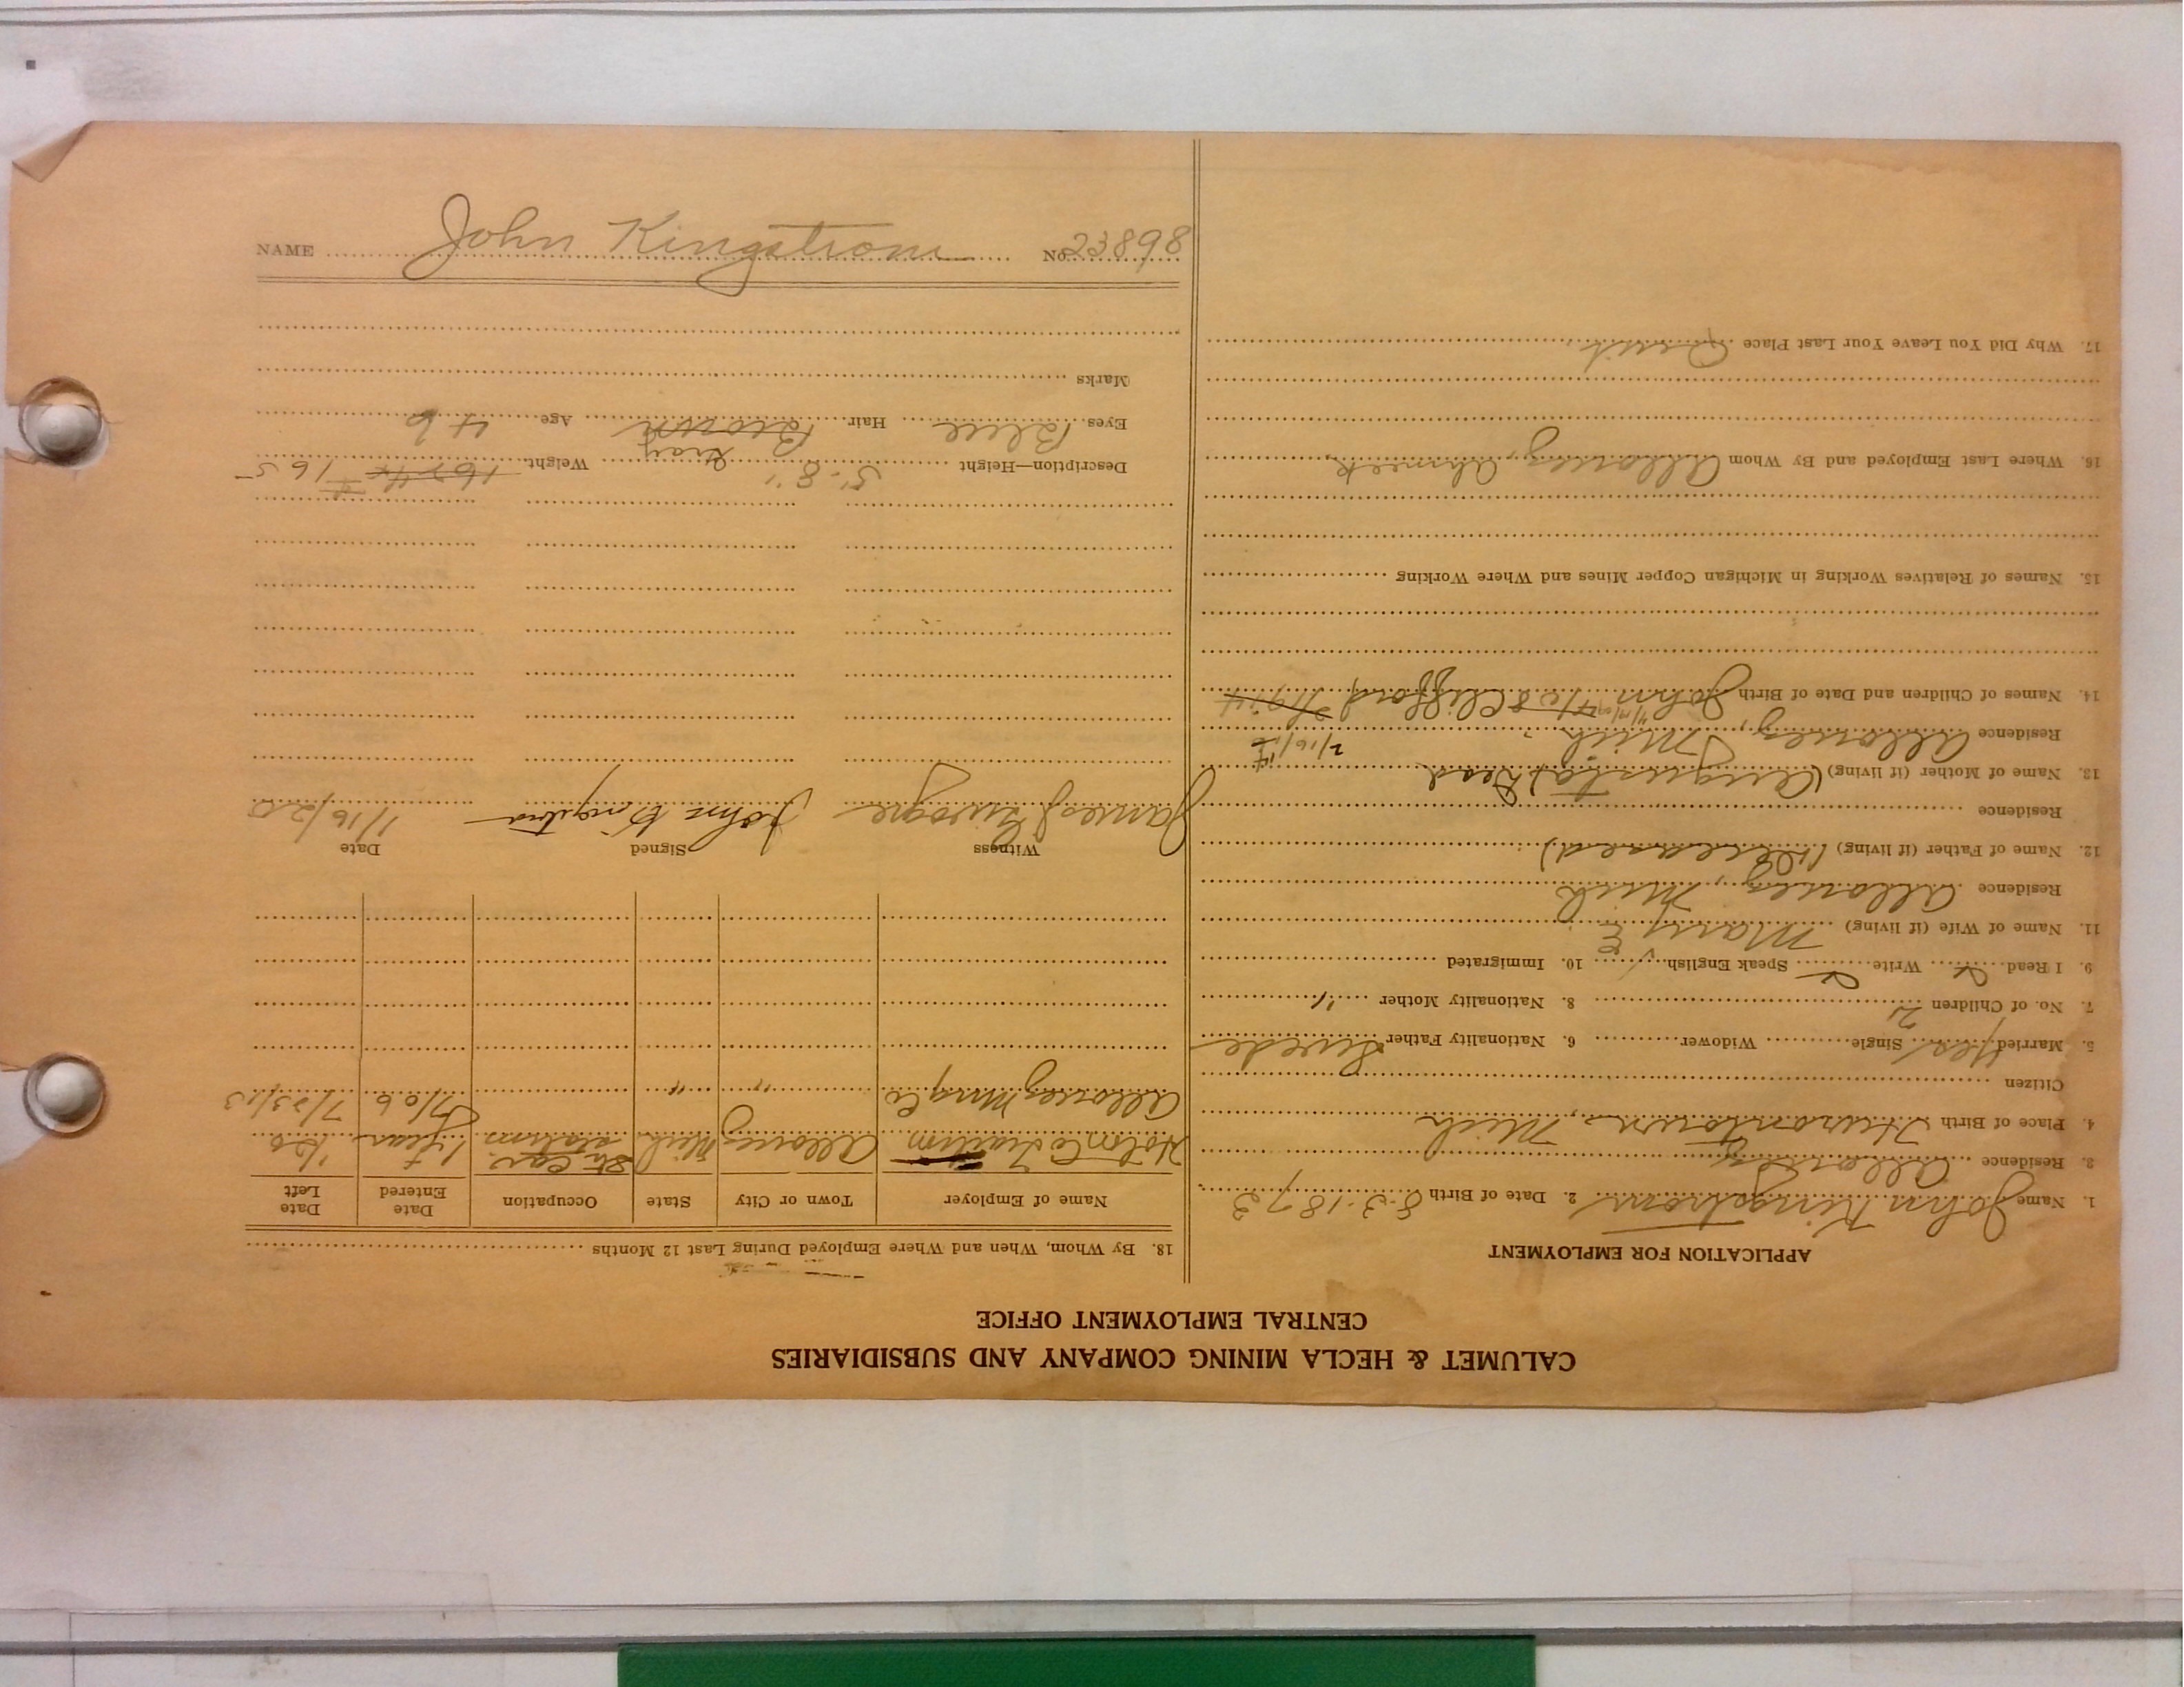 CALUMET & HECLA MINING COMPANY AND SUBSIDIARIES
CENTRAL EMPLOYMENT OFFICE
APPLICATION FOR EMPLOYMENT
1. Name John Kingstrom 2. Date of Birth 8-3-1873
3. Residence Allouez
4. Place of Birth Hurontown, Mich
Citizen
5. Married Yes Single Widower 6. Nationality Father Swede
7. No. of Children 2 8. Nationality Mother "
9. I Read Write Speak English 10. Immigrated
11. Name of Wife (if living) Mary E
Residence Allouez, Mich
12. Name of Father (if living) (deceased)
Residence
13. Name of Mother (if living) (Augusta) Dead
Residence Allouez, Mich
14. Names of Children and Date of Birth John Clifford
15. Names of Relatives Working in Michigan Copper Mines and Where Working
16. Where Last Employed and By Whom Allouez, Ahmeek
17. Why Did You Leave Your Last Place Quit
18. By Whom, When and Where Employed During Last 12 Months
Name of Employer Town or City State Occupation Date Entered Date Left
Allouez Mich St. Car
Allouez Mng Co " " 7/06 7/23/13
Witness Signed Date
James John Kingstrom 1/16/20
Description—Height 5'-8" Weight 165
Gray
Eyes Blue Hair Brown Age 46
Marks
NAME John Kingstrom No. 23898